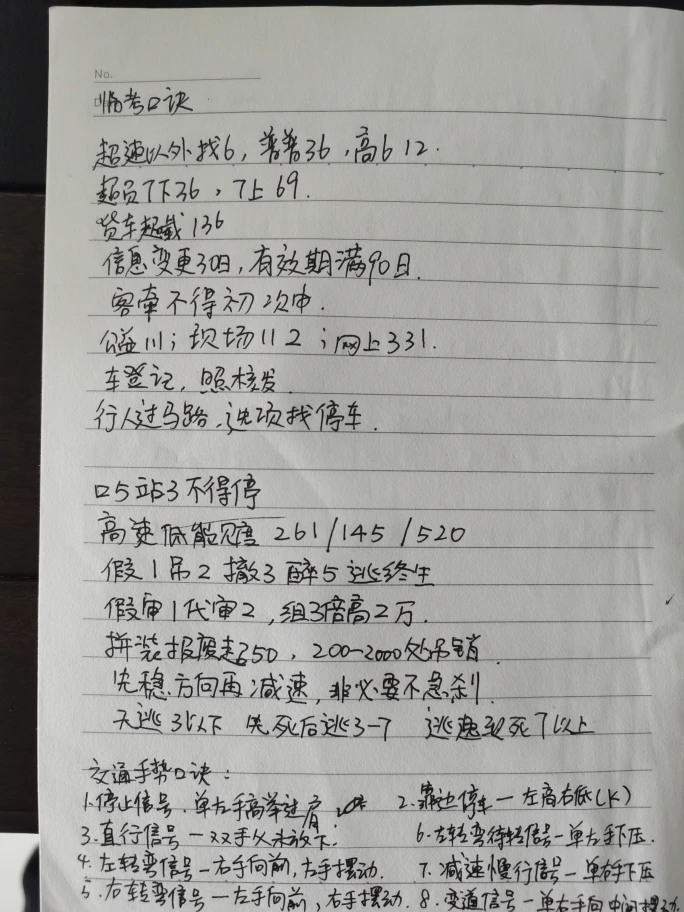 No.
临考口诀
超速以外找6，普普36，高6 12.
超员7下36，7上69.
货车超载136
信息变更30日，有效期满90日.
客牵不得初次申.
公益111；现场112；网上331.
车登记，照核发
行人过马路，选项找停车.
口5站3不得停
高速低能见度 261/145/520
假1吊2撤3醉5逃终生
假审1代审2，组3倍高2万.
拼装报废起50，200-2000处吊销.
先稳方向再减速，非必要不急刹.
无逃3以下 先死后逃3-7 逃逸致死7以上
交通手势口诀：
1.停止信号.单左手高举过肩 2.靠边停车—左高右低(K)
3.直行信号—双手 放下. 6.左转弯待转信号—单左手下压.
4.左转弯信号—右手向前,左手摆动. 7.减速慢行信号—单右手下压
5.右转弯信号—左手向前,右手摆动. 8.变道信号—单右手向中间摆动.